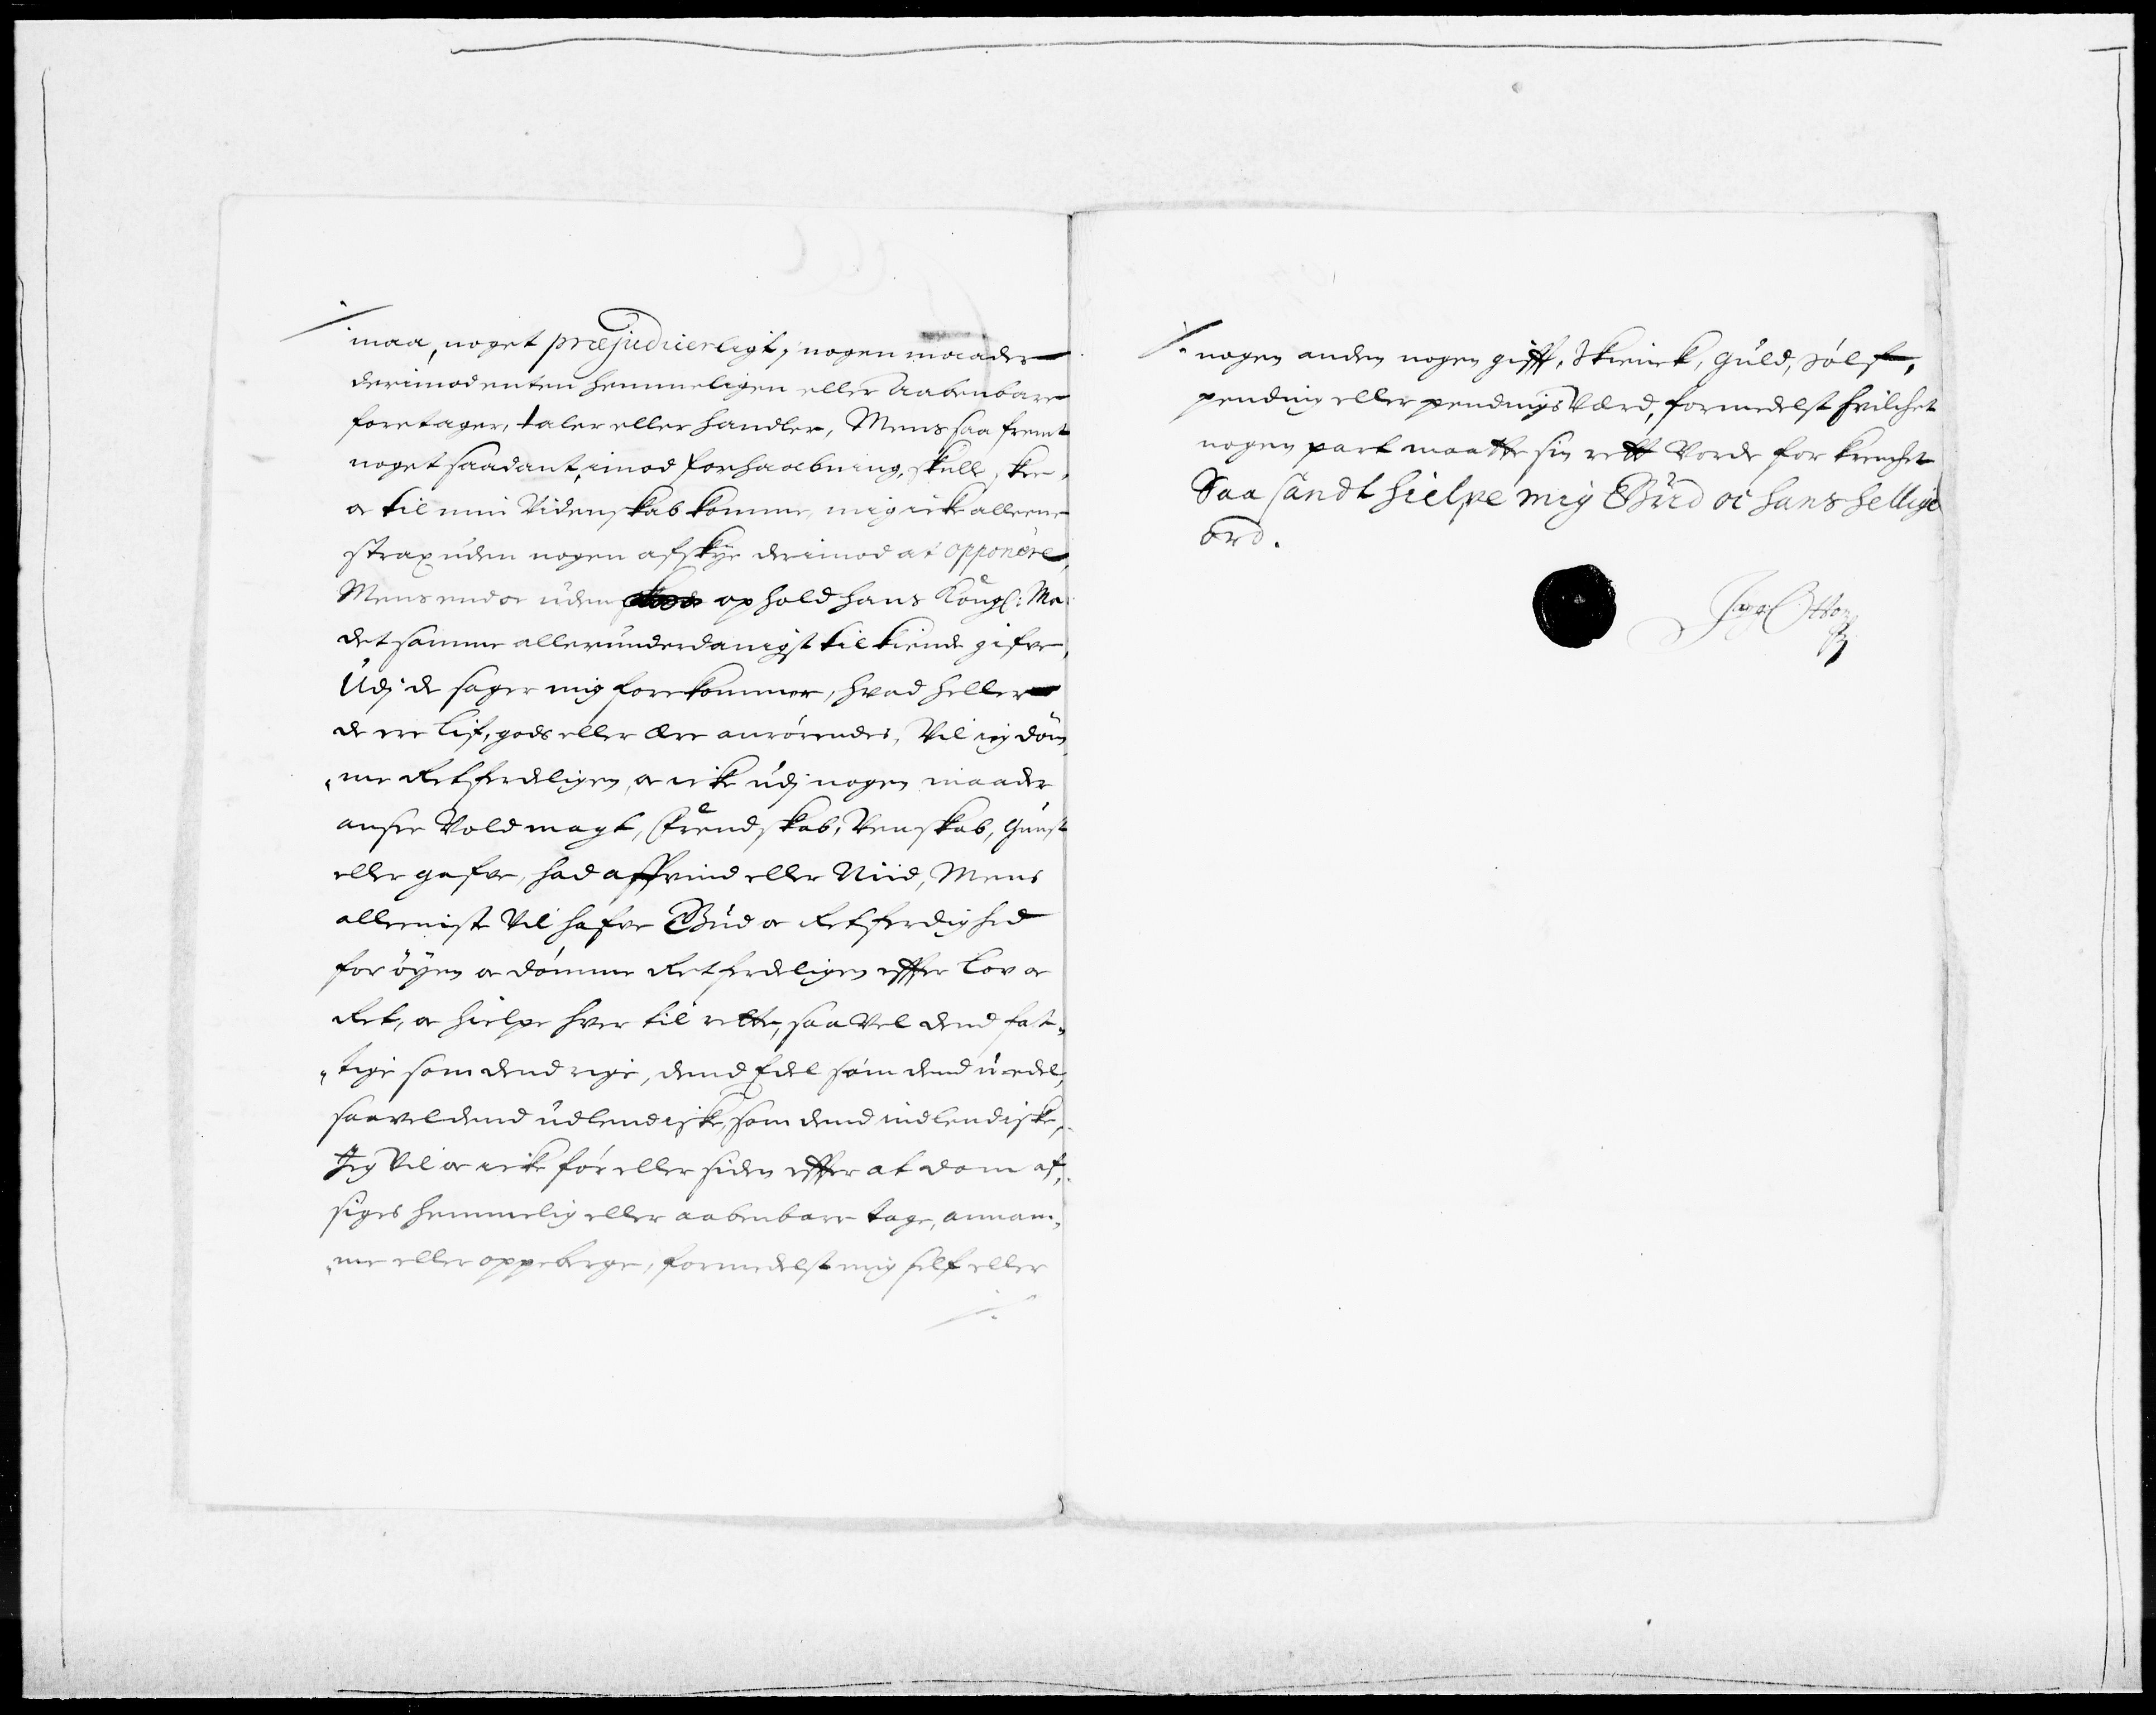 maa, noget præjudicerligt, i nogen maader
derimod enten hemmeligen eller aabenbare
foretager, taler eller handler, Mens saa fremt
noget saadant, imod forhaabning, skulle skee,
oc til min Videnskab komme, mig icke alleene
strax uden nogen afskye derimod at opponere,
Mens end oc uden ophold hans Kongl: Ma.
det samme allerunderdanigst tilkiende gifve,
Udj de sager mig forekommer, hvad heller
de ere lif, gods eller ære anrørendes, Vil ieg døm,
„me Retferdeligen, oc icke udj nogen maader
ansee Vold magt, Frendskab, Venskab, Gunst
eller gafve, had affvind eller Niid, Mens
allerniste Vil hafve Gud oc Retferdighed
for øyen oc dømme Retferdeligen effter Lov oc
Ret, oc hielpe hver til rette, saa Vel dend fat„
„tige som dend rige, dend Edel som dend uedel,
saavel dend udlendiske, som dend indlendiske,
Jeg Vil oc icke før eller siden effter at dom af„
siges hemmelig eller aabenbare tage, annam„
„me eller oppeberge, formedelst mig self eller
./.
./. nogen anden nogen gifft, Skienck, Guld, Sølf,
pending eller pendings Værd, formedelst hvilchet
nogen part maatte sin rett Vorde for krenchet
Saa sandt hielpe mig Gud oc hans hellige
ord.